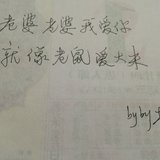 老婆老婆我爱你
就像老鼠爱大米
byby